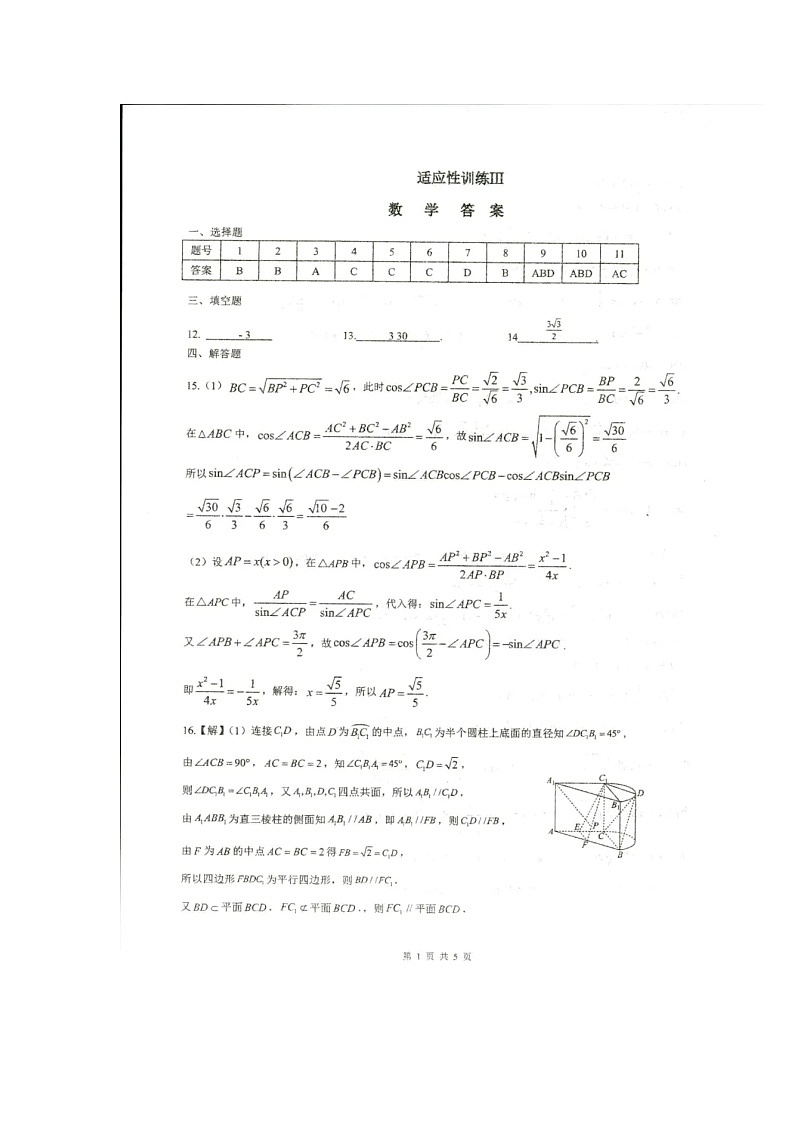 适应性训练III
数 学 答 案
一、选择题
题号 1 2 3 4 5 6 7 8 9 10 11
答案 B B A C C C D B ABD ABD AC
三、填空题
12. - 3 13. 3 30 . 14 3√3/2 .
四、解答题
15.(1) BC = √(BP² + PC²) = √6 ，此时 cos∠PCB = PC/BC = √2/√6 = √3/3 , sin∠PCB = BP/BC = 2/√6 = √6/3 .
在△ABC 中，cos∠ACB = (AC² + BC² − AB²)/(2AC·BC) = √6/6 ，故 sin∠ACB = √(1 − (√6/6)²) = √30/6
所以 sin∠ACP = sin(∠ACB − ∠PCB) = sin∠ACBcos∠PCB − cos∠ACBsin∠PCB
= √30/6 · √3/3 − √6/6 · √6/3 = (√10 − 2)/6
（2）设 AP = x(x > 0)，在△APB 中，cos∠APB = (AP² + BP² − AB²)/(2AP·BP) = (x² − 1)/4x .
在△APC 中，AP/sin∠ACP = AC/sin∠APC ，代入得：sin∠APC = 1/5x .
又∠APB + ∠APC = 3π/2 ，故 cos∠APB = cos(3π/2 − ∠APC) = −sin∠APC .
即 (x² − 1)/4x = − 1/5x ，解得：x = √5/5 ，所以 AP = √5/5 .
16.【解】（1）连接C₁D，由点 D 为 B₁C₁ 的中点，B₁C₁ 为半个圆柱上底面的直径知∠DC₁B₁ = 45°，
由∠ACB = 90°，AC = BC = 2，知∠C₁B₁A₁ = 45°，C₁D = √2，
则∠DC₁B₁ = ∠C₁B₁A₁，又 A₁,B₁,D,C₁ 四点共面，所以 A₁B₁ // C₁D.
由 A₁ABB₁ 为直三棱柱的侧面知 A₁B₁ // AB，即 A₁B₁ // FB，则 C₁D // FB，
由 F 为 AB 的中点 AC = BC = 2 得 FB = √2 = C₁D，
所以四边形 FBDC₁ 为平行四边形，则 BD // FC₁.
又 BD ⊂ 平面 BCD. FC₁ ⊄ 平面 BCD.，则 FC₁ // 平面 BCD.
A₁ C₁ D B₁ A E P C F B
第 1 页 共 5 页